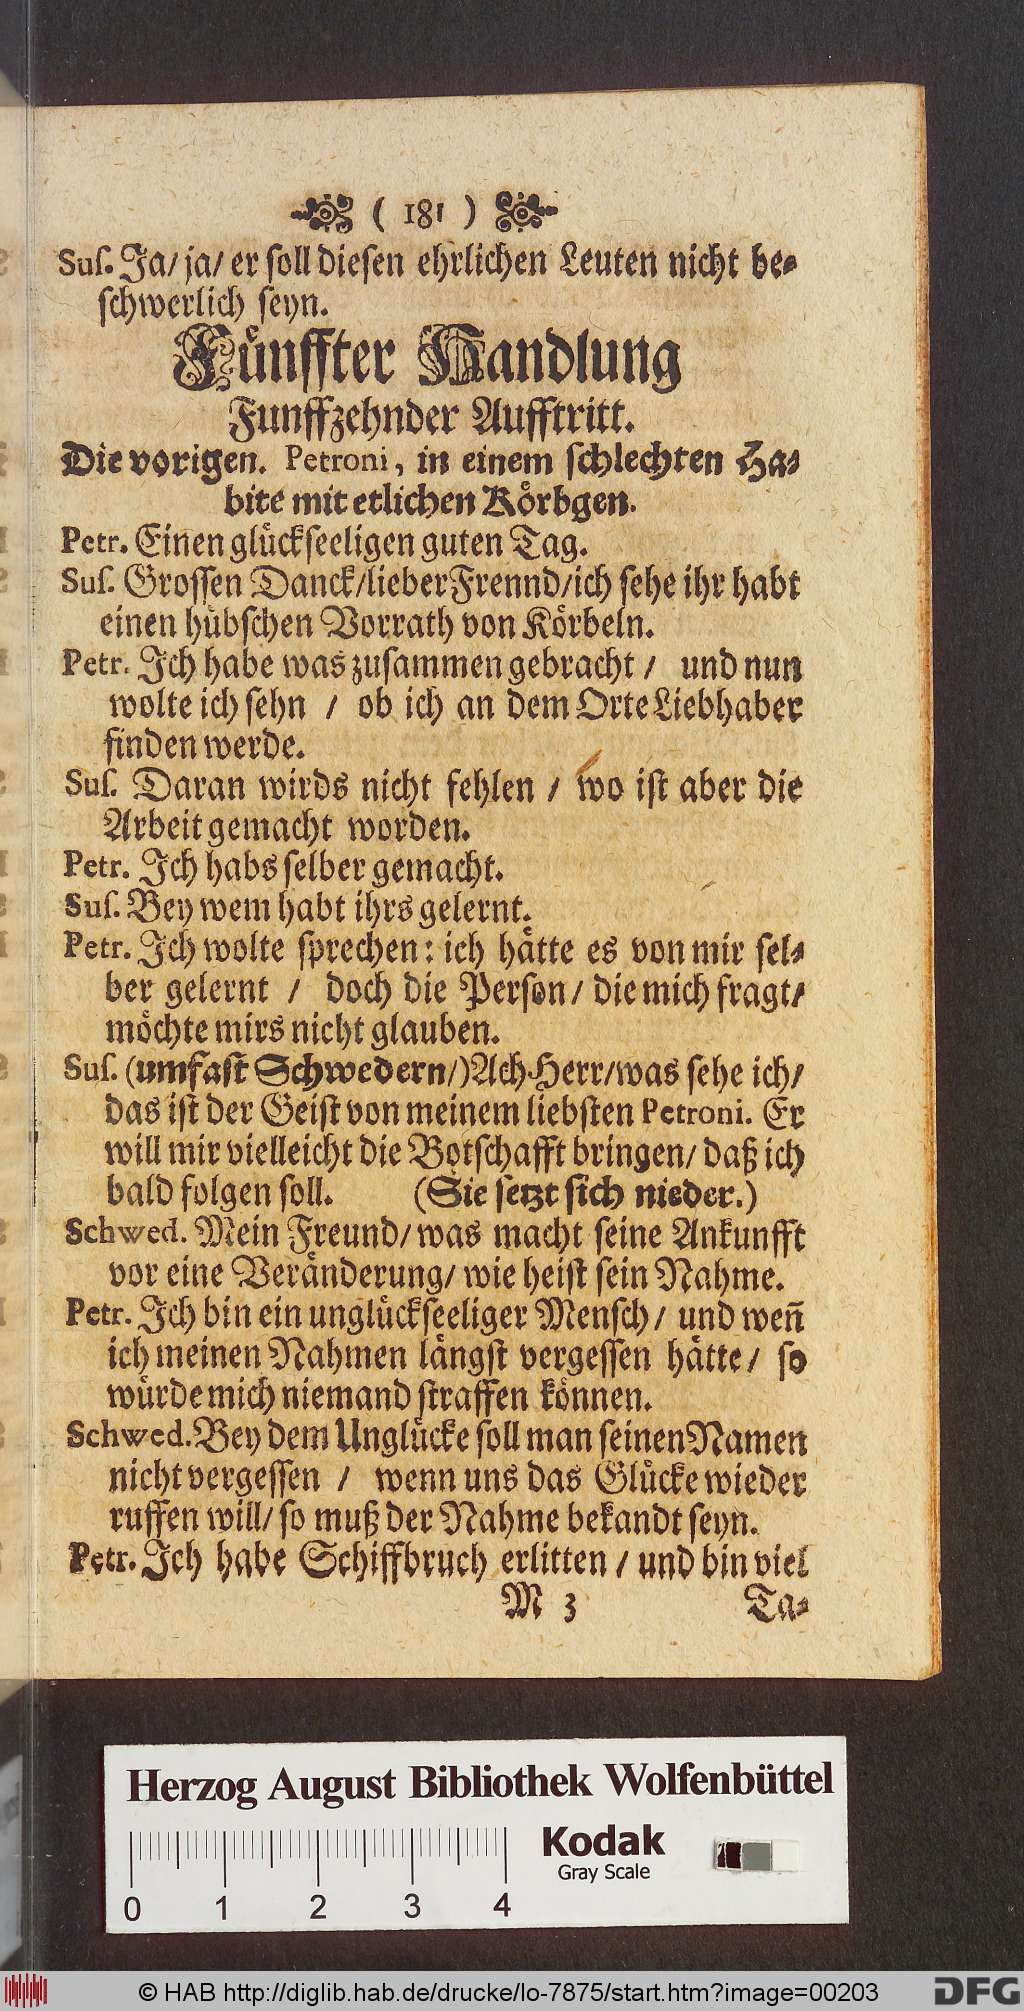 ( 181 )
Suſ. Ja/ ja/ er ſoll dieſen ehrlichen Leuten nicht be⸗
ſchwerlich ſeyn.
Fuͤnffter Handlung
Funffzehnder Aufftritt.
Die vorigen. Petroni, in einem ſchlechten Ha⸗
bite mit etlichen Koͤrbgen.
Petr. Einen gluͤckſeeligen guten Tag.
Suſ. Groſſen Danck/ lieber Frennd/ ich ſehe ihr habt
einen huͤbſchen Vorrath von Koͤrbeln.
Petr. Ich habe was zuſammen gebracht / und nun
wolte ich ſehn / ob ich an dem Orte Liebhaber
finden werde.
Suſ. Daran wirds nicht fehlen / wo iſt aber die
Arbeit gemacht worden.
Petr. Ich habs ſelber gemacht.
Suſ. Bey wem habt ihrs gelernt.
Petr. Ich wolte ſprechen: ich haͤtte es von mir ſel⸗
ber gelernt / doch die Perſon/ die mich fragt/
moͤchte mirs nicht glauben.
Suſ. (umfaſt Schwedern/) Ach Herr/ was ſehe ich/
das iſt der Geiſt von meinem liebſten Petroni. Er
will mir vielleicht die Botſchafft bringen/ daß ich
bald folgen ſoll. (Sie ſetzt ſich nieder.)
Schwed. Mein Freund/ was macht ſeine Ankunfft
vor eine Veraͤnderung/ wie heiſt ſein Nahme.
Petr. Ich bin ein ungluͤckſeeliger Menſch/ und weñ
ich meinen Nahmen laͤngſt vergeſſen haͤtte/ ſo
wuͤrde mich niemand ſtraffen koͤnnen.
Schwed. Bey dem Ungluͤcke ſoll man ſeinen Namen
nicht vergeſſen / wenn uns das Gluͤcke wieder
ruffen will/ ſo muß der Nahme bekandt ſeyn.
Petr. Ich habe Schiffbruch erlitten / und bin viel
M 3 Ta⸗
Herzog August Bibliothek Wolfenbüttel
Kodak
Gray Scale
0 1 2 3 4
© HAB http://diglib.hab.de/drucke/lo-7875/start.htm?image=00203
DFG